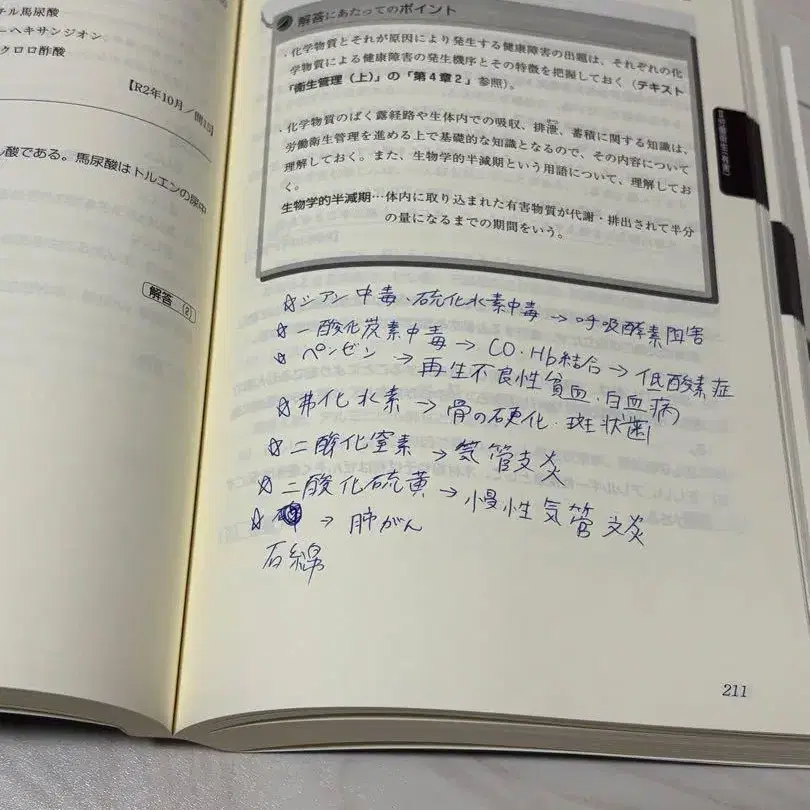 チル馬尿酸
ーヘキサンジオン
クロロ酢酸
【R2年10月／問15】
ル酸である。馬尿酸はトルエンの尿中
解答 (2)
解答にあたってのポイント
・化学物質とそれが原因により発生する健康障害の出題は、それぞれの化
学物質による健康障害の発生機序とその特徴を把握しておく（テキスト
「衛生管理（上）」の「第4章2」参照）。
・化学物質のばく露経路や生体内での吸収、排泄、蓄積に関する知識は、
労働衛生管理を進める上で基礎的な知識となるので、その内容について
理解しておく。また、生物学的半減期という用語について、理解してお
く。
生物学的半減期…体内に取り込まれた有害物質が代謝・排出されて半分
の量になるまでの期間をいう。
☆シアン中毒、硫化水素中毒→呼吸酵素阻害
☆一酸化炭素中毒→CO・Hb結合→低酸素症
☆ベンゼン→再生不良性貧血、白血病
☆弗化水素→骨の硬化・斑状歯
☆二酸化窒素→気管支炎
☆二酸化硫黄→慢性気管支炎
☆ →肺がん
石綿
211